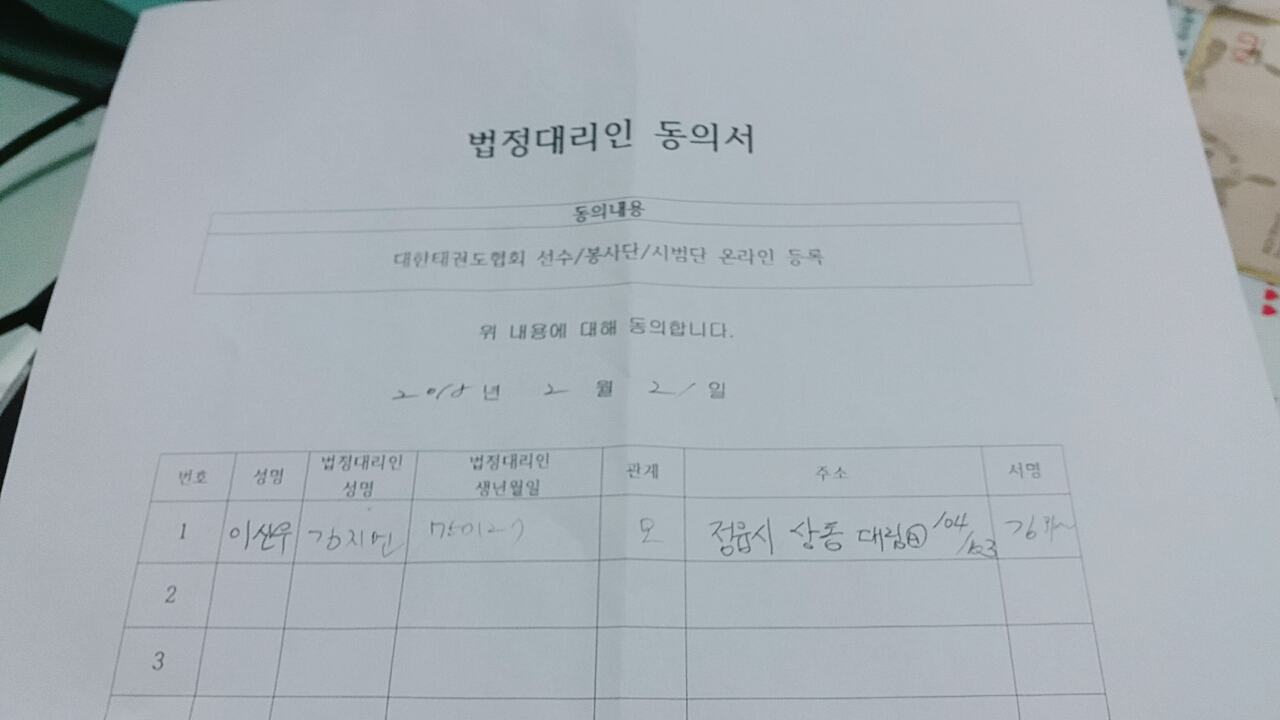 법정대리인 동의서
동의내용
대한태권도협회 선수/봉사단/시범단 온라인 등록
위 내용에 대해 동의합니다.
2018년 2 월 21 일
번호 성명 법정대리인 성명 법정대리인 생년월일 관계 주소 서명
1 이산우 김지연 모 정읍시 상동 대림Ⓐ 104/
2
3